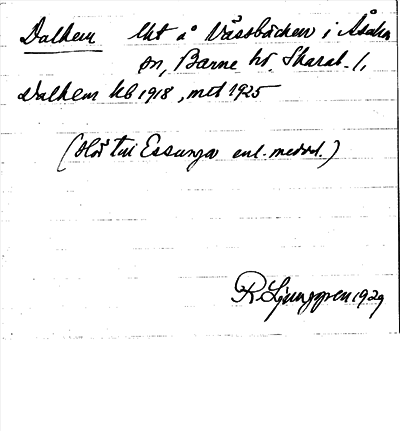 Dalhem lht å Vässbäcken i Åsaka
sn, Barne hd, Skarab. l,
Dalhem kb 1918, mtl 1925
(Hör till Essunga enl. medd.)
R Ljunggren 1929